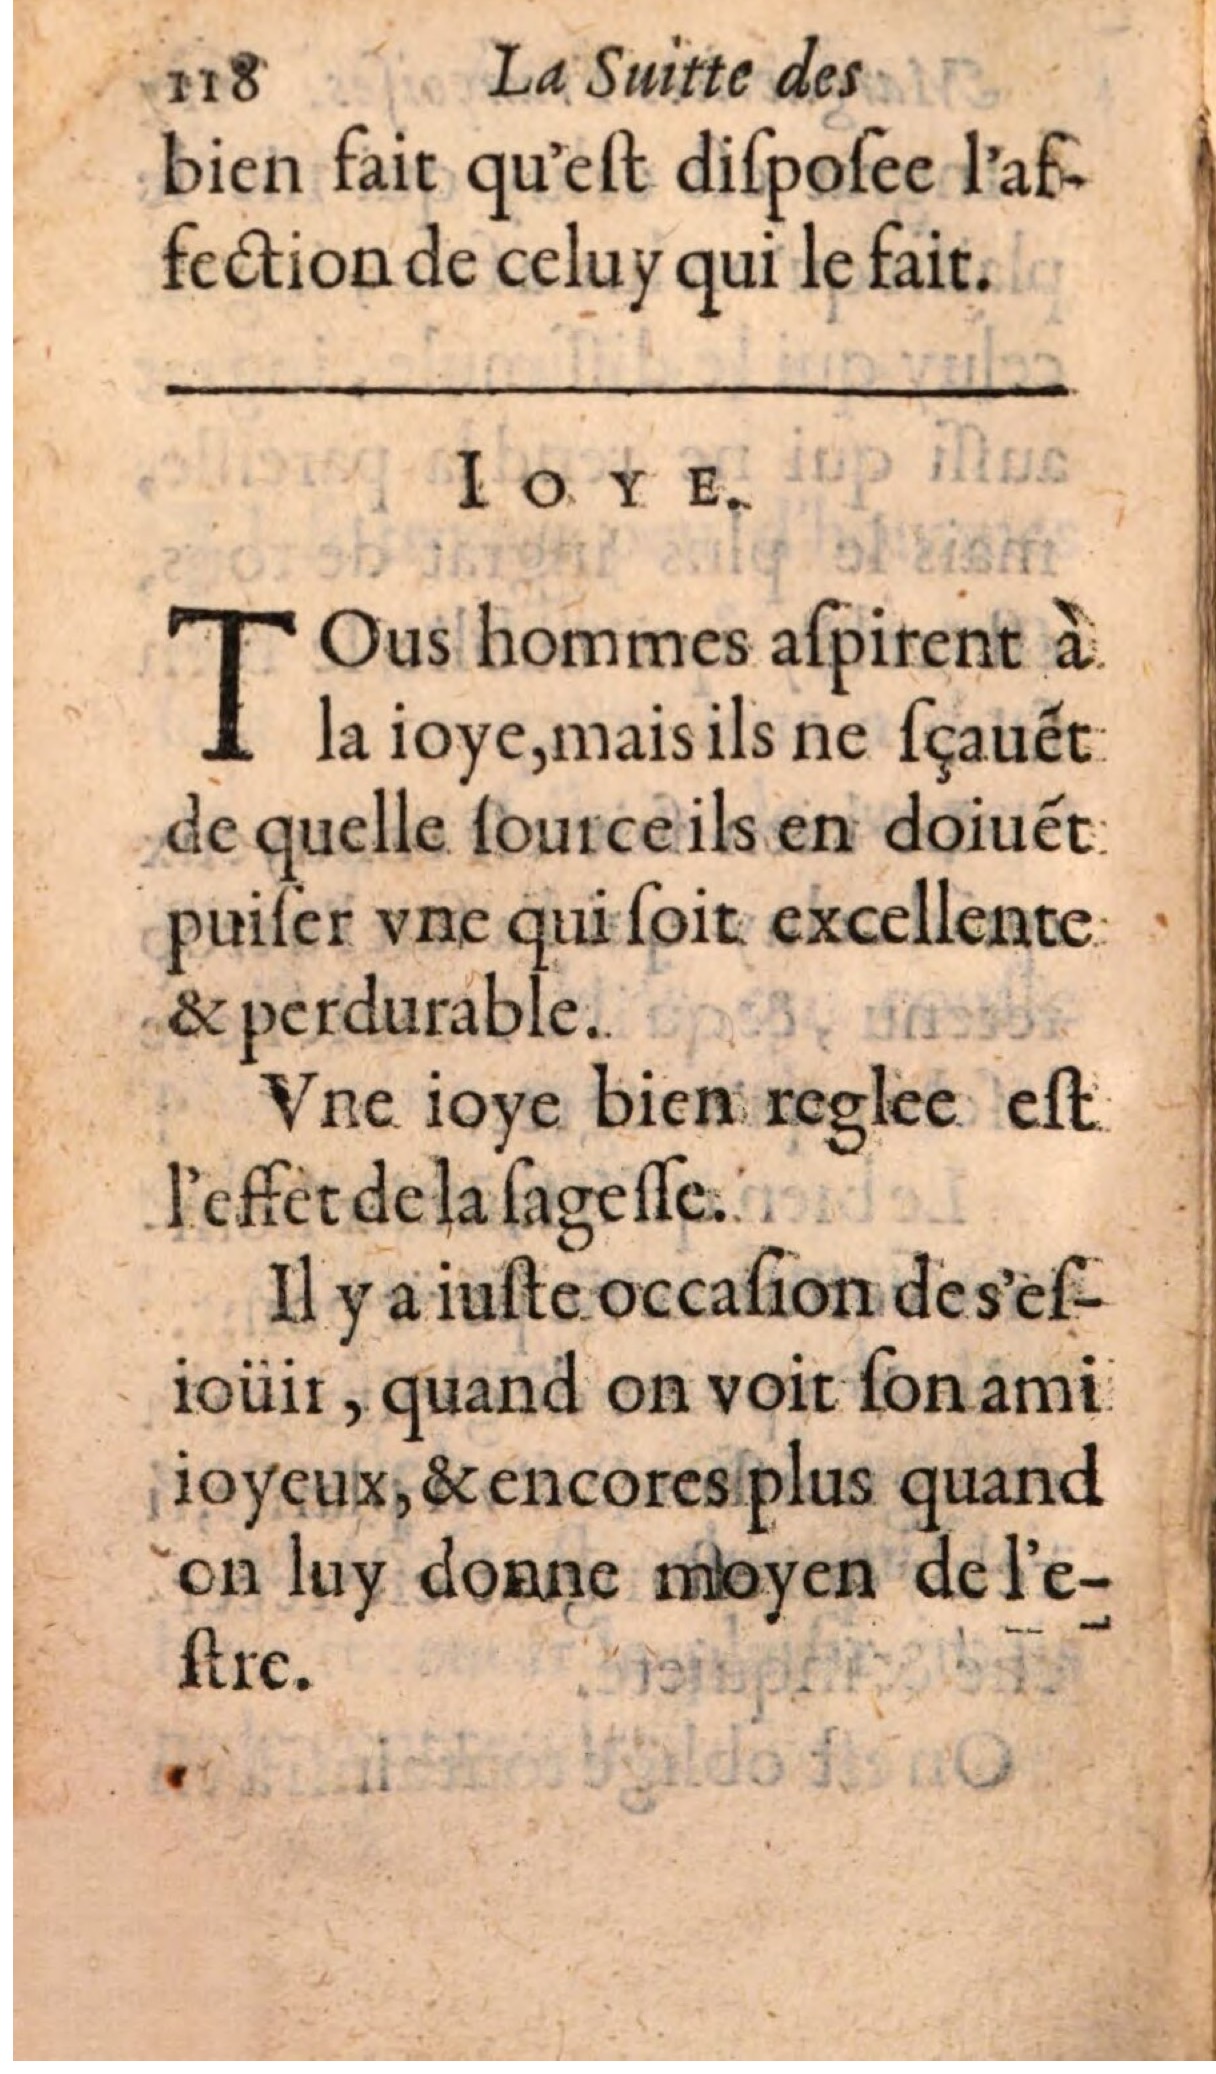 118 La Suitte des
bien fait qu'eſt diſpoſee l'af-
fection de celuy qui le fait.
IOYE.
TOus hommes aſpirent à
la ioye, mais ils ne ſçauẽt
de quelle ſource ils en doiuẽt
puiſer vne qui ſoit excellente
& perdurable.
Vne ioye bien reglee eſt
l'effet de la ſageſſe.
Il y a iuſte occaſion de s'eſ-
ioüir, quand on voit ſon ami
ioyeux, & encores plus quand
on luy donne moyen de l'e-
ſtre.